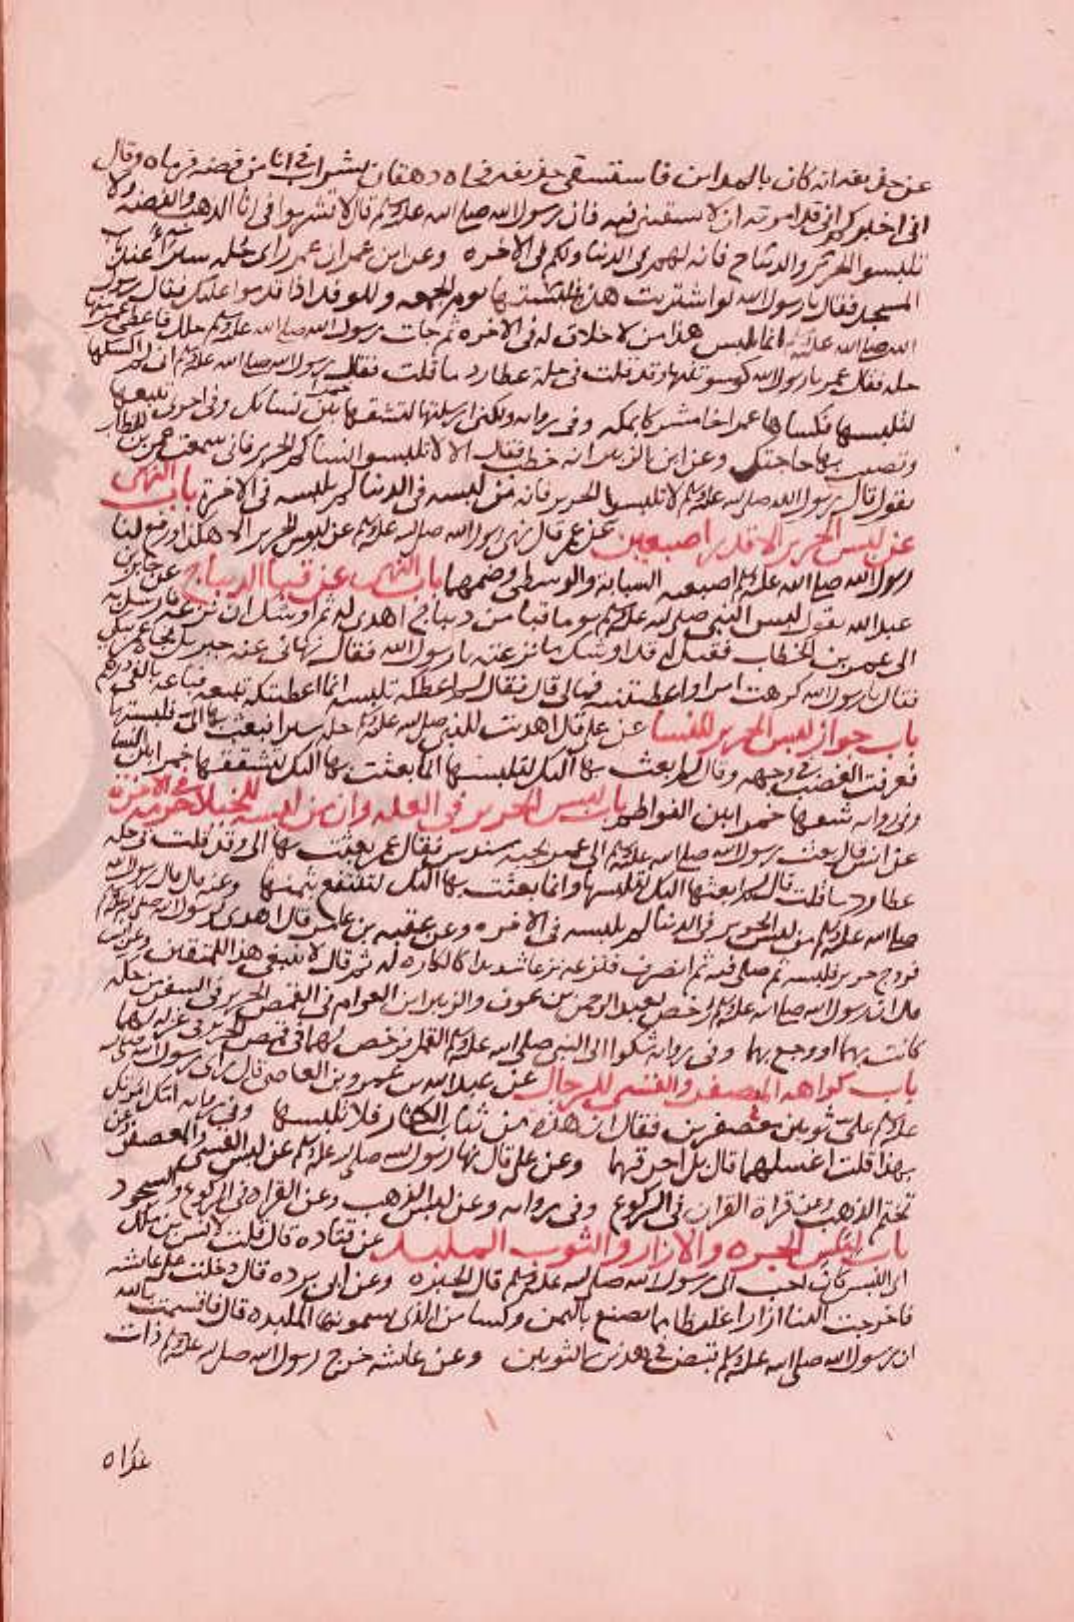 عن حذيفه انه كان بالمداين فاستسقى حذيفه فجاه دهقان بشراب في انا من فضه فرماه وقال
انى اخبركم انى قد امرته ان لا يسقينى فيه فان رسول الله صلى الله عليه وسلم قال لا تشربوا فى انا الذهب والفضه ولا
تلبسوا الحرير والديباج فانه لهم فى الدنيا ولكم فى الاخره وعن ابن عمر ان عمر راى حله سيرا عند باب
المسجد فقال يا رسول الله لو اشتريت هذه فلبستها يوم الجمعه وللوفد اذا قدموا عليك فقال رسول
الله صلى الله عليه وسلم انما يلبس هذا من لا خلاق له فى الاخره ثم جات رسول الله صلى الله عليه وسلم حلل فاعطى عمر منها
حله فقال عمر يا رسول الله كسوتنيها وقد قلت فى حلة عطارد ما قلت فقال رسول الله صلى الله عليه وسلم انى لم اكسكها
لتلبسها فكساها عمر اخا مشركا بمكه وفى روايه ولكنى ارسلتها لتشققها بين نسائك وفى اخرى تبيعها
وتصيب بها حاجتك وعن ابن الزبير انه خطب فقال الا لا تلبسوا نساكم الحرير فانى سمعت عمر بن الخطاب
يقول قال رسول الله صلى الله عليه وسلم لا تلبسوا الحرير فانه من لبسه فى الدنيا لم يلبسه فى الاخرة باب النهى
عن لبس الحرير الا قدر اصبعين عن عمر قال نهى رسول الله صلى الله عليه وسلم عن لبوس الحرير الا هكذا ورفع لنا
رسول الله صلى الله عليه وسلم اصبعيه السبابة والوسطى وضمهما باب النهى عن قبا الديباج عن جابر بن
عبد الله يقول لبس النبى صلى الله عليه وسلم يوما قبا من ديباج اهدى له ثم اوشك ان نزعه فارسل به
الى عمر بن الخطاب فقيل له قد اوشك ما نزعته يا رسول الله فقال نهانى عنه جبريل فجا عمر يبكى
فقال يا رسول الله كرهت امرا واعطيتنيه فمالى قال فقال لم اعطكه تلبسه انما اعطيتكه تبيعه فباعه بالفى درهم
باب جواز لبس الحرير للنسا عن على قال اهديت للنبى صلى الله عليه وسلم حله سيرا فبعث بها الى فلبستها
فعرفت الغضب فى وجهه وقال لم ابعث بها اليك لتلبسها انما بعثت بها اليك لتشققها خمرا بين النسا
وفى روايه شققها خمرا بين الفواطم باب لبس الحرير فى العله وان من لبسه للخيلا حرمه فى الاخرة
عن انس قال بعث رسول الله صلى الله عليه وسلم الى عمر بجبه سندس فقال عمر بعثت بها الى وقد قلت فى حله
عطارد ما قلت قال لم ابعثها اليك لتلبسها وانما بعثت بها اليك لتنتفع بثمنها وعنه قال قال رسول الله
صلى الله عليه وسلم من لبس الحرير فى الدنيا لم يلبسه فى الاخره وعن عقبه بن عامر قال اهدى لرسول الله صلى الله عليه وسلم
فروج حرير فلبسه ثم صلى فيه ثم انصرف فنزعه نزعا شديدا كالكاره له ثم قال لا ينبغى هذا للمتقين وعن انس
قال ان رسول الله صلى الله عليه وسلم رخص لعبد الرحمن بن عوف والزبير ابن العوام فى القمص الحرير فى السفر من حكه
كانت بهما او وجع بهما وفى روايه شكوا الى النبى صلى الله عليه وسلم القمل فرخص لهما فى قمص الحرير فى غزاه لهما
باب كراهه المعصفر والقسى للرجال عن عبد الله بن عمرو بن العاص قال راى رسول الله صلى الله
عليه وسلم على ثوبين معصفرين فقال ان هذه من ثياب الكفار فلا تلبسها وفى روايه امك امرتك
بهذا قلت اغسلهما قال بل احرقهما وعن على قال نها رسول الله صلى الله عليه وسلم عن لبس القسى والمعصفر وعن
تختم الذهب وعن قراة القران فى الركوع وفى روايه وعن لباس الذهب وعن القراه فى الركوع والسجود
باب لبس الحبره والازار والثوب الملبد عن قتاده قال قلت لانس بن مالك
اى اللباس كان احب الى رسول الله صلى الله عليه وسلم قال الحبره وعن ابى برده قال دخلت على عائشه
فاخرجت الينا ازارا غليظا مما يصنع باليمن وكسا من الذى يسمونها الملبده قال فاقسمت بالله
ان رسول الله صلى الله عليه وسلم قبض فى هذين الثوبين وعن عائشه خرج رسول الله صلى الله عليه وسلم ذات
غداه